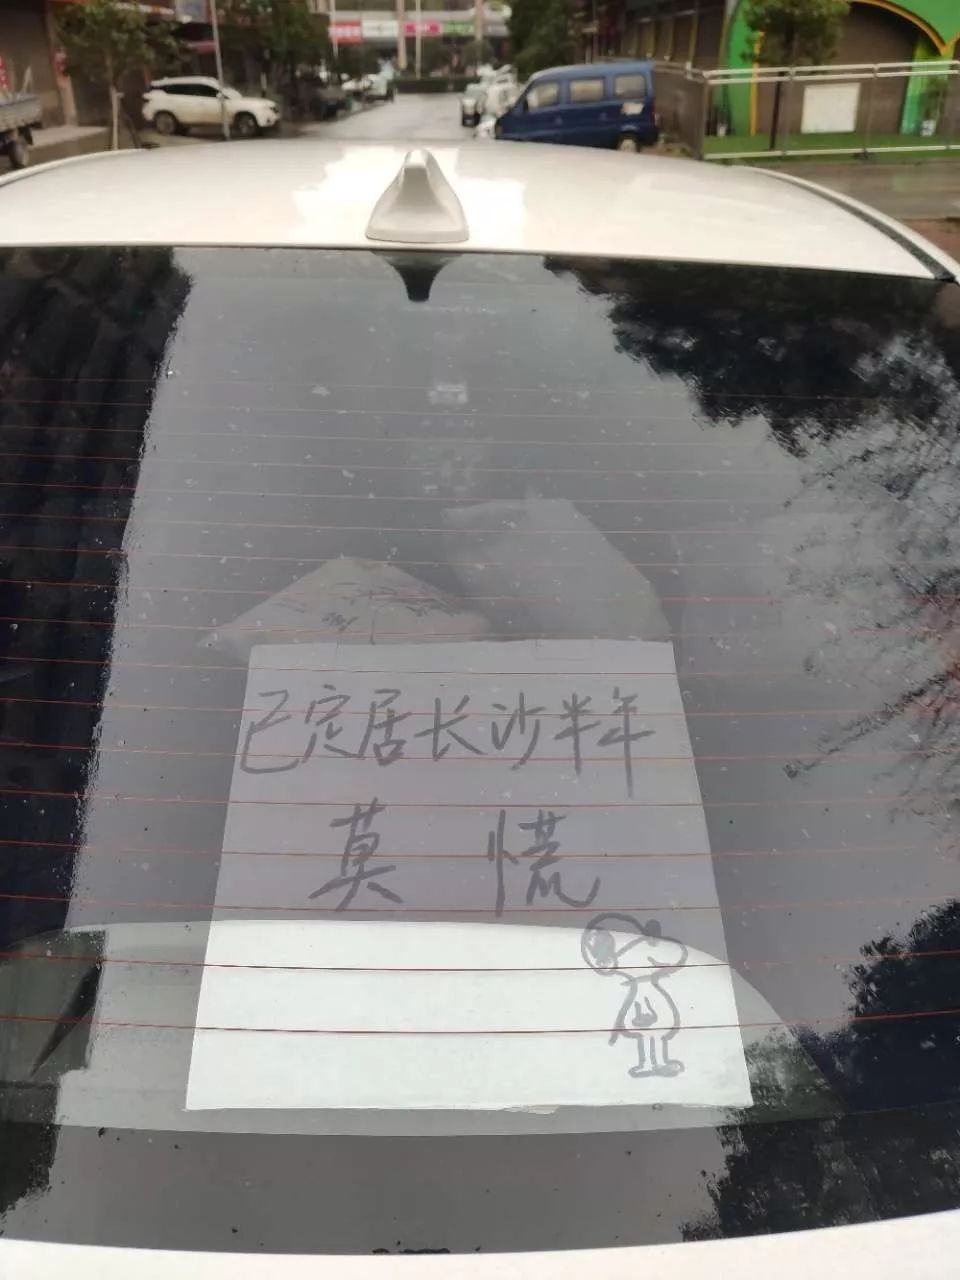 已定居长沙半年
莫慌